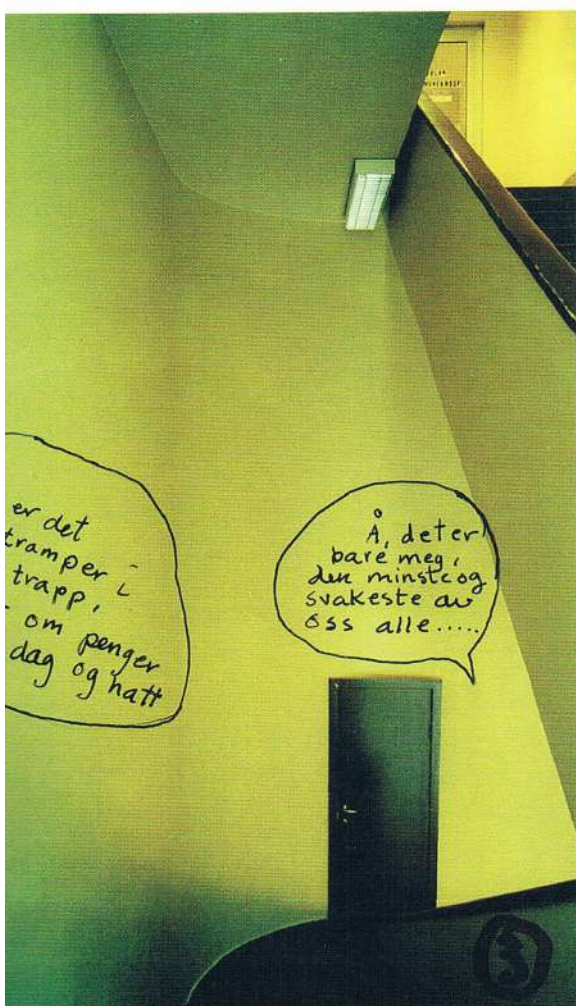 er det
tramper i
trapp,
om penger
dag og natt
Å, det er
bare meg,
den minste og
svakeste av
oss alle.....
3